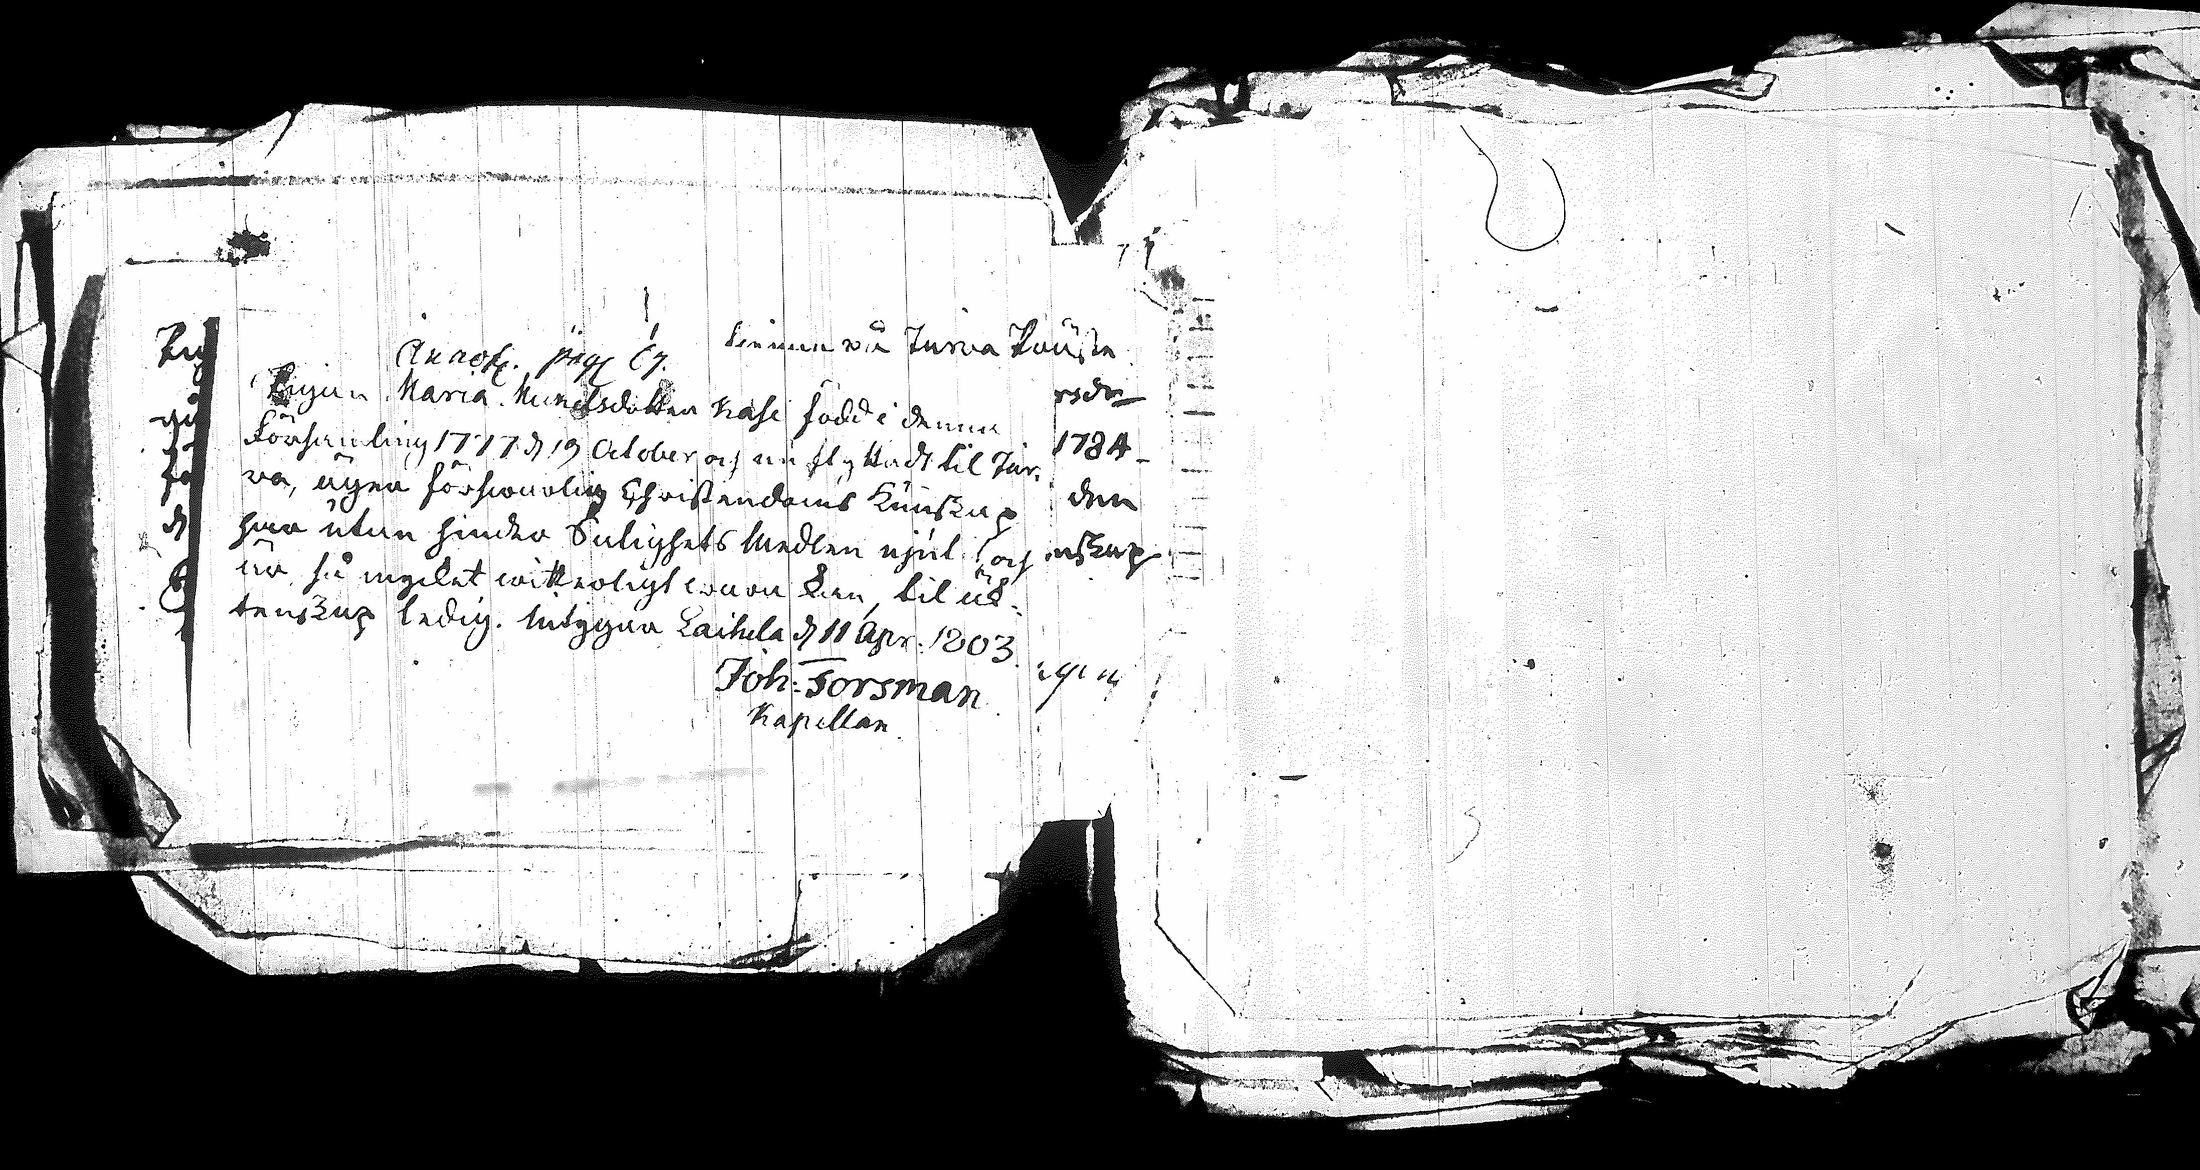 Annot. pag 67. på Jurva
Pigan Maria Michelsdotter Kasi född i denna
Församling 1777 d 19 October och nu flyttadt til Jur-
va, äger försvarlig Christendoms Kunskap
har utan hinder Salighets Medlen njut. och
är, så mycket witterligt wara kan, til äk-
tenskap ledig. Intygar Laihela d 11 Apr. 1803.
Joh: Forsman
Kapellan.
1784
den
nskap